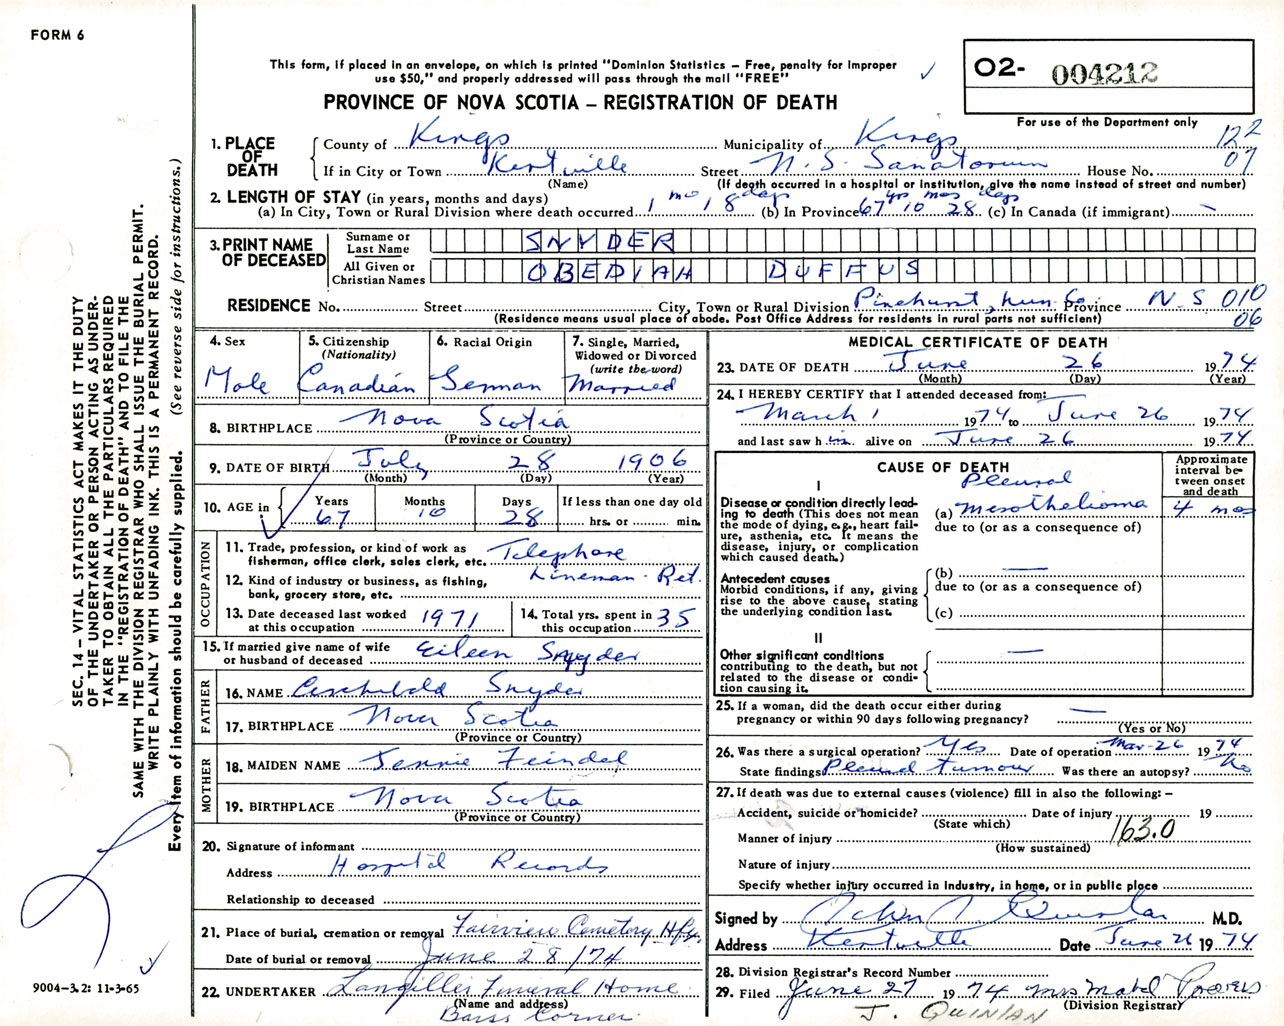 FORM 6
This form, if placed in an envelope, on which is printed "Dominion Statistics – Free, penalty for improper
use $50," and properly addressed will pass through the mail "FREE"
O2- 004212
PROVINCE OF NOVA SCOTIA – REGISTRATION OF DEATH
For use of the Department only
122
07
1. PLACE OF DEATH
County of Kings Municipality of Kings
If in City or Town Kentville Street N. S. Sanatorium House No.
(Name) (If death occurred in a hospital or institution, give the name instead of street and number)
2. LENGTH OF STAY (in years, months and days)
(a) In City, Town or Rural Division where death occurred 1 mo 18 days (b) In Province 67 yrs 10 mos 28 days (c) In Canada (if immigrant) –
3. PRINT NAME OF DECEASED
Surname or Last Name SNYDER
All Given or Christian Names OBEDIAH DUFFUS
RESIDENCE No. Street City, Town or Rural Division Pinehurst, Lun. Co. Province N.S 010
06
(Residence means usual place of abode. Post Office Address for residents in rural parts not sufficient)
4. Sex Male
5. Citizenship (Nationality) Canadian
6. Racial Origin German
7. Single, Married, Widowed or Divorced (write the word) Married
8. BIRTHPLACE Nova Scotia
(Province or Country)
9. DATE OF BIRTH July 28 1906
(Month) (Day) (Year)
10. AGE in Years 67 Months 10 Days 28 If less than one day old hrs. or min.
OCCUPATION
11. Trade, profession, or kind of work as fisherman, office clerk, sales clerk, etc. Telephone
12. Kind of industry or business, as fishing, bank, grocery store, etc. Lineman - Ret.
13. Date deceased last worked at this occupation 1971
14. Total yrs. spent in this occupation 35
15. If married give name of wife or husband of deceased Eileen Snyder
FATHER
16. NAME Archibald Snyder
17. BIRTHPLACE Nova Scotia
(Province or Country)
MOTHER
18. MAIDEN NAME Jennie Feindel
19. BIRTHPLACE Nova Scotia
(Province or Country)
20. Signature of informant
Address Hospital Records
Relationship to deceased
21. Place of burial, cremation or removal Fairview Cemetery Hfx.
Date of burial or removal June 28/74
22. UNDERTAKER Langilles Funeral Home
(Name and address)
Barss Corner
MEDICAL CERTIFICATE OF DEATH
23. DATE OF DEATH June 26 1974
(Month) (Day) (Year)
24. I HEREBY CERTIFY that I attended deceased from:
March 1 1974 to June 26 1974
and last saw him alive on June 26 1974
CAUSE OF DEATH
Approximate interval between onset and death
I
Disease or condition directly leading to death (This does not mean the mode of dying, e.g., heart failure, asthenia, etc. It means the disease, injury, or complication which caused death.)
(a) Pleural Mesothelioma 4 mos
due to (or as a consequence of)
Antecedent causes
Morbid conditions, if any, giving rise to the above cause, stating the underlying condition last.
(b) —
due to (or as a consequence of)
(c)
II
Other significant conditions
contributing to the death, but not related to the disease or condition causing it.
—
25. If a woman, did the death occur either during pregnancy or within 90 days following pregnancy? —
(Yes or No)
26. Was there a surgical operation? Yes Date of operation Mar-26 1974
State findings Pleural tumour Was there an autopsy? No
27. If death was due to external causes (violence) fill in also the following: –
Accident, suicide or homicide? Date of injury 19
(State which)
163.0
Manner of injury
(How sustained)
Nature of injury
Specify whether injury occurred in industry, in home, or in public place
Signed by John J. Quinlan M.D.
Address Kentville Date June 26 1974
28. Division Registrar's Record Number
29. Filed June 27 1974 Mrs Mabel Powers
(Division Registrar)
J. QUINLAN
SEC. 14 – VITAL STATISTICS ACT MAKES IT THE DUTY
OF THE UNDERTAKER OR PERSON ACTING AS UNDER-
TAKER TO OBTAIN ALL THE PARTICULARS REQUIRED
IN THE "REGISTRATION OF DEATH" AND TO FILE THE
SAME WITH THE DIVISION REGISTRAR WHO SHALL ISSUE THE BURIAL PERMIT.
WRITE PLAINLY WITH UNFADING INK. THIS IS A PERMANENT RECORD.
Every item of information should be carefully supplied. (See reverse side for instructions.)
9004-3.2: 11-3-65